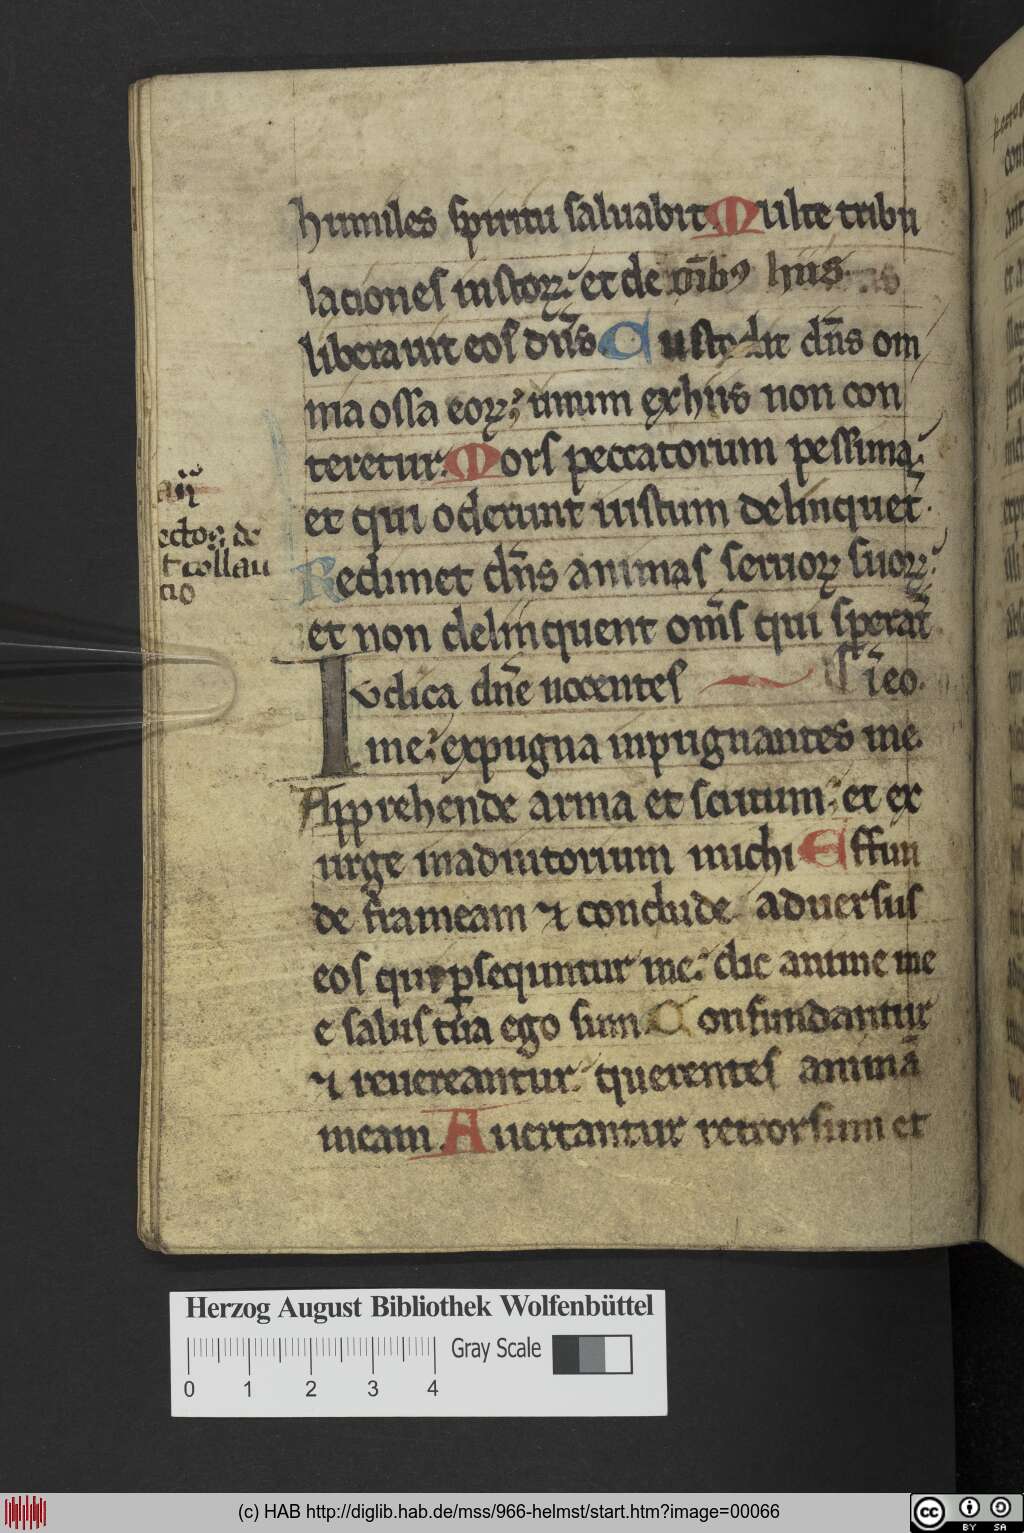 humiles spiritu saluabit. Multe tribu
laciones iustoꝝ: et de om̄ibꝰ hiis
liberauit eos dn̄s. Custodit dn̄s om
nia ossa eoꝝ: unum ex hiis non con
teretur. Mors peccatorum pessima:
et qui oderunt iustum delinquet.
Redimet dn̄s animas seruoꝝ suoꝝ:
et non delinquent om̄s qui sperāt
Iudica dn̄e nocentes i̅ eo.
me: expugna inpugnantes me.
Apprehende arma et scutum: et ex
urge in adiutorium michi Effun
de frameam ⁊ conclude aduersus
eos qui ꝑsequntur me: dic anime me
e salus tua ego sum. Confundantur
⁊ reuereantur: querentes animā
meam. Auertantur retrorsum et
ectoꝝ de
t collau
tio
Herzog August Bibliothek Wolfenbüttel
Gray Scale
0 1 2 3 4
(c) HAB http://diglib.hab.de/mss/966-helmst/start.htm?image=00066
cc BY SA